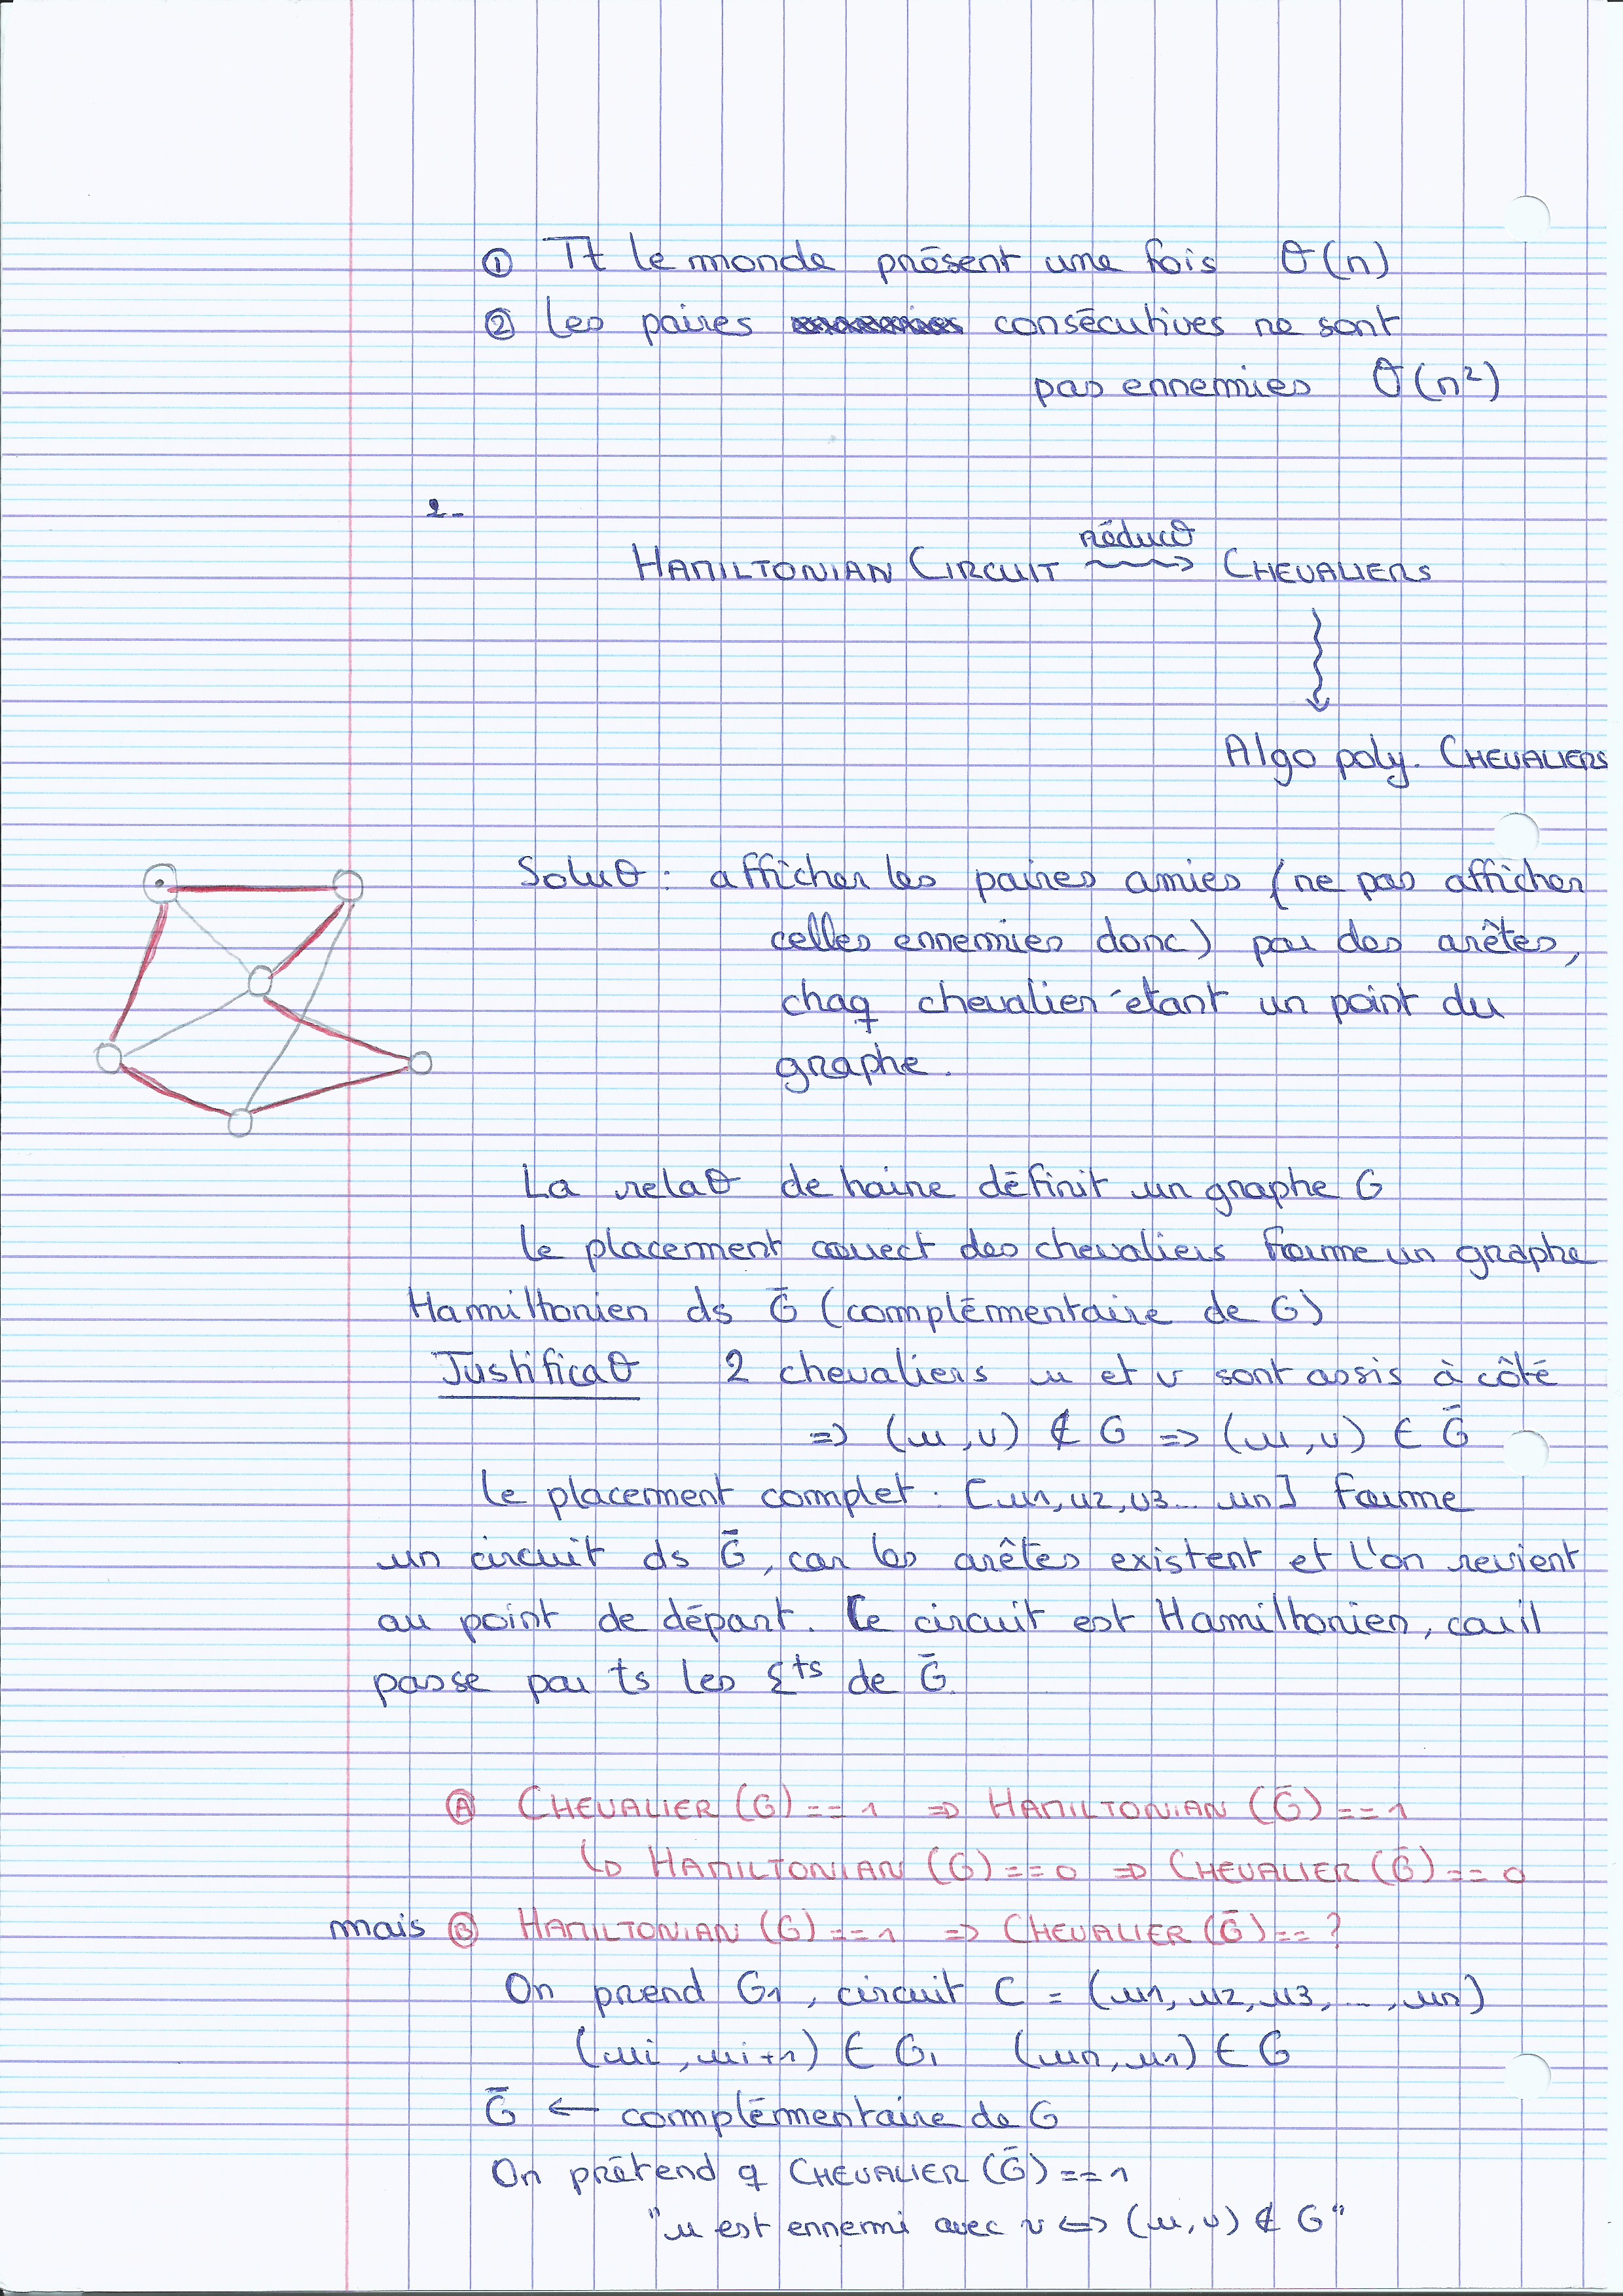 ① Tt le monde présent une fois O(n)
② Les paires consécutives ne sont
pas ennemies O(n²)
2-
HAMILTONIAN CIRCUIT réducθ ⇝ CHEVALIERS
Algo poly. CHEVALIERS
Soluθ : afficher les paires amies (ne pas afficher
celles ennemies donc) par des arêtes,
chaq chevalier étant un point du
graphe.
La relaθ de haine définit un graphe G
Le placement correct des chevaliers forme un graphe
Hamiltonien ds Ḡ (complémentaire de G)
Justificaθ 2 chevaliers u et v sont assis à côté
=> (u,v) ∉ G => (u,v) ∈ Ḡ
Le placement complet : [u1, u2, u3... un] forme
un circuit ds Ḡ, car les arêtes existent et l'on revient
au point de départ. Ce circuit est Hamiltonien, car il
passe par ts les Σts de Ḡ.
Ⓐ CHEVALIER (G) == 1 => HAMILTONIAN (Ḡ) == 1
↳ HAMILTONIAN (G) == 0 => CHEVALIER (Ḡ) == 0
mais Ⓑ HAMILTONIAN (G) == 1 => CHEVALIER (Ḡ) == ?
On prend G1, circuit C = (u1, u2, u3, ..., un)
(ui, ui+1) ∈ G, (un, u1) ∈ G
Ḡ ← complémentaire de G
On prétend q CHEVALIER (Ḡ) == 1
"u est ennemi avec v <=> (u,v) ∉ G"